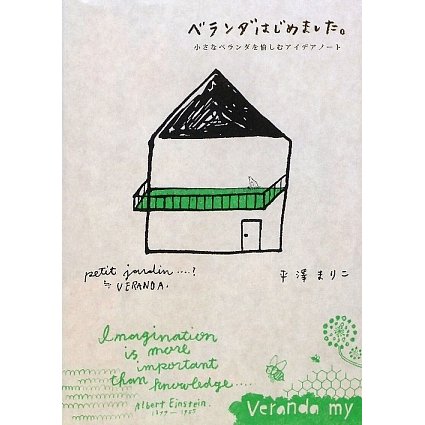 ベランダはじめました。
小さなベランダを愉しむアイデアノート
petit jardin....?
≒ VERANDA.
平澤まりこ
Imagination
is more
important
than knowledge....
Albert Einstein.
1879-1955
Veranda my